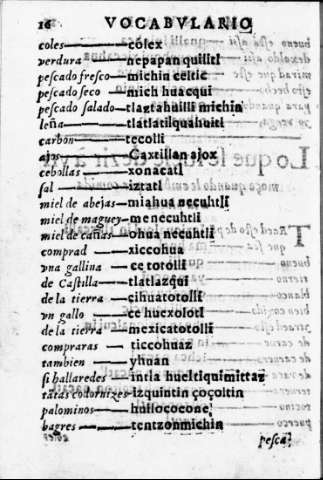 16 VOCABVLARIO
coles——colex
verdura——nepapan quilitl
pescado fresco—michin celtic
pescado seco——mich huacqui
pescado salado—tlaztahuilli michin
leña——tlatlatilquahuitl
carbon——tecolli
ajos——Caxtillan ajox
cebollas——xonacatl
sal——iztatl
miel de abejas—miahua necuhtli
miel de maguey—menecuhtli
miel de cañas—ohua necuhtli
comprad——xiccohua
vna gallina——ce totolli
de Castilla——tlatlazqui
de la tierra——cihuatotolli
vn gallo——ce huexolotl
de la tierra——mexicatotolli
compraras——ticcohuaz
tambien——yhuan
si hallaredes——intla hueltiquimittaz
tatas codornizes—izquintin çoçoltin
palominos——huilocone
bagres——tentzonmichin
pesca